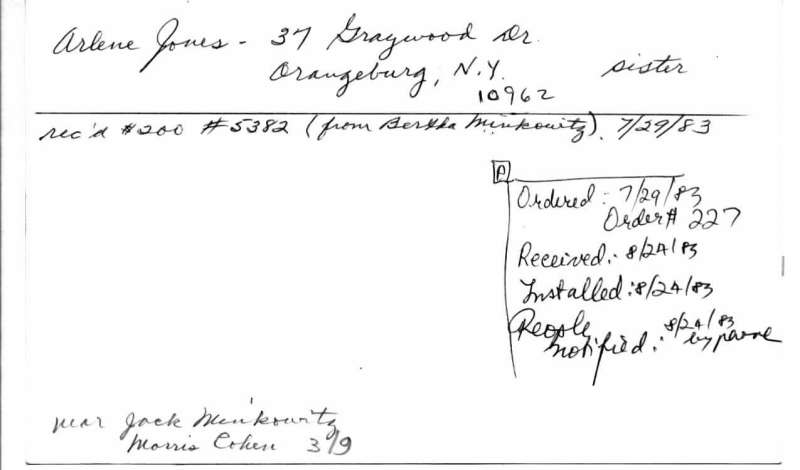 Arlene Jones - 37 Graywood Dr.
Orangeburg, N.Y. sister
10962
rec'd $200 #5382 (from Bertha Minkowitz). 7/29/83
A
Ordered: 7/29/83
Order# 227
Received: 8/24/83
Installed: 8/24/83
People 8/24/83
notified: by phone
near Jack Minkowitz
Morris Cohen 3/9